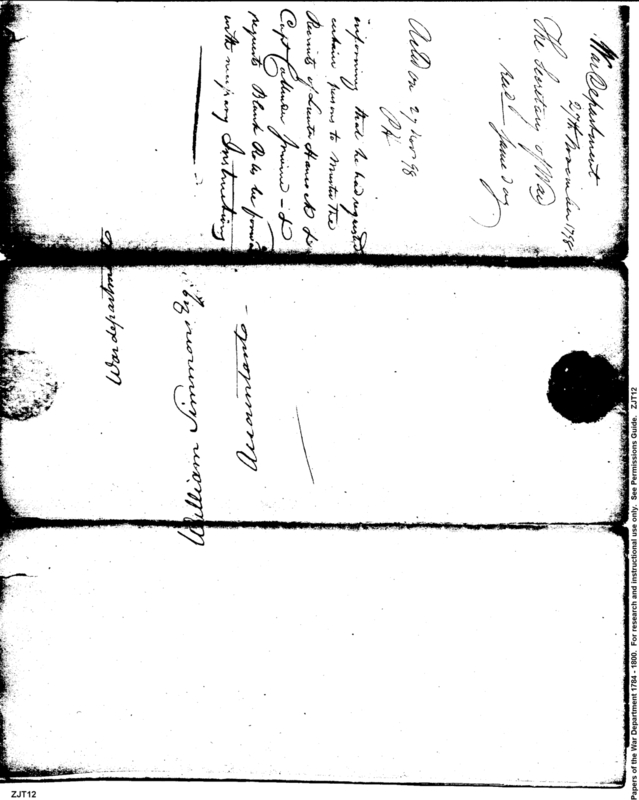 War Department
27th November 1798
The Secretary of War
recd same day
Actd on 27 Novr 98
informing that he had requested
certain persons to Muster the
Recruits of Lieuts Hancock &
Capt
requests Blank Rolls be forwd
with necessary Instructions
War department
William Simmons Esqr.
Accountant
Papers of the War Department 1784 - 1800. For research and instructional use only. See Permissions Guide. ZJT12
ZJT12